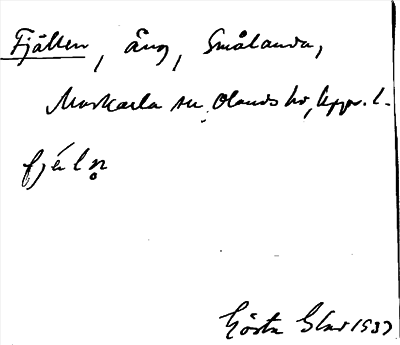 Fjällen, äng, Smålanda,
Markarla sn, Olands hd, Upps. l.
fjɛ́lṇ
Gösta 1937